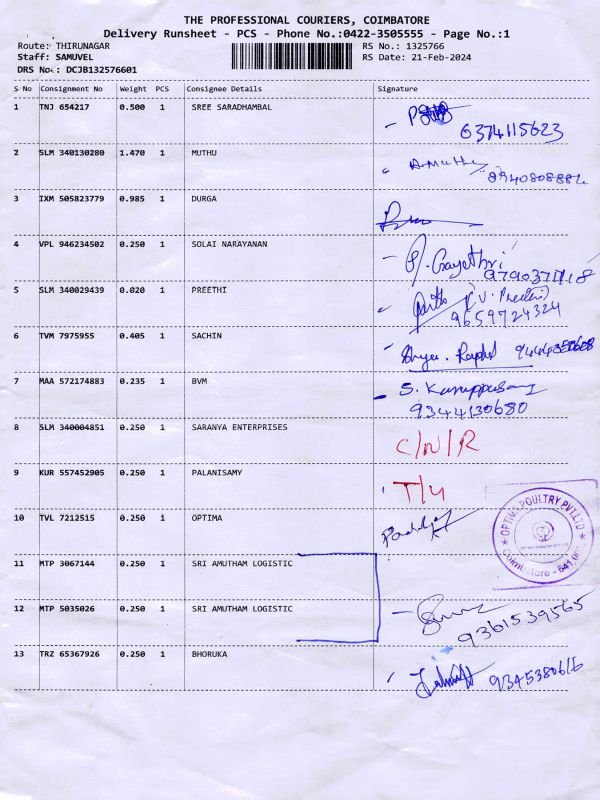 THE PROFESSIONAL COURIERS, COIMBATORE
Delivery Runsheet - PCS - Phone No.:0422-3505555 - Page No.:1
Route: THIRUNAGAR RS No.: 1325766
Staff: SAMUVEL RS Date: 21-Feb-2024
DRS No.: DCJB132576601
S No Consignment No Weight PCS Consignee Details Signature
1 TNJ 654217 0.500 1 SREE SARADHAMBAL
6374115623
2 SLM 340130280 1.470 1 MUTHU A.Muthu
3 IXM 505823779 0.985 1 DURGA
4 VPL 946234502 0.250 1 SOLAI NARAYANAN Gayathri
5 SLM 340029439 0.020 1 PREETHI (V. Preethi)
9659724324
6 TVM 7975955 0.405 1 SACHIN
7 MAA 572174883 0.235 1 BVM S.
9344130680
8 SLM 340004851 0.250 1 SARANYA ENTERPRISES C/N/R
9 KUR 557452905 0.250 1 PALANISAMY T/4
10 TVL 7212515 0.250 1 OPTIMA
OPTIMA POULTRY PVT.LTD
Coimbatore - 641
11 MTP 3067144 0.250 1 SRI AMUTHAM LOGISTIC
12 MTP 5035026 0.250 1 SRI AMUTHAM LOGISTIC 9361539565
13 TRZ 65367926 0.250 1 BHORUKA 9345380616